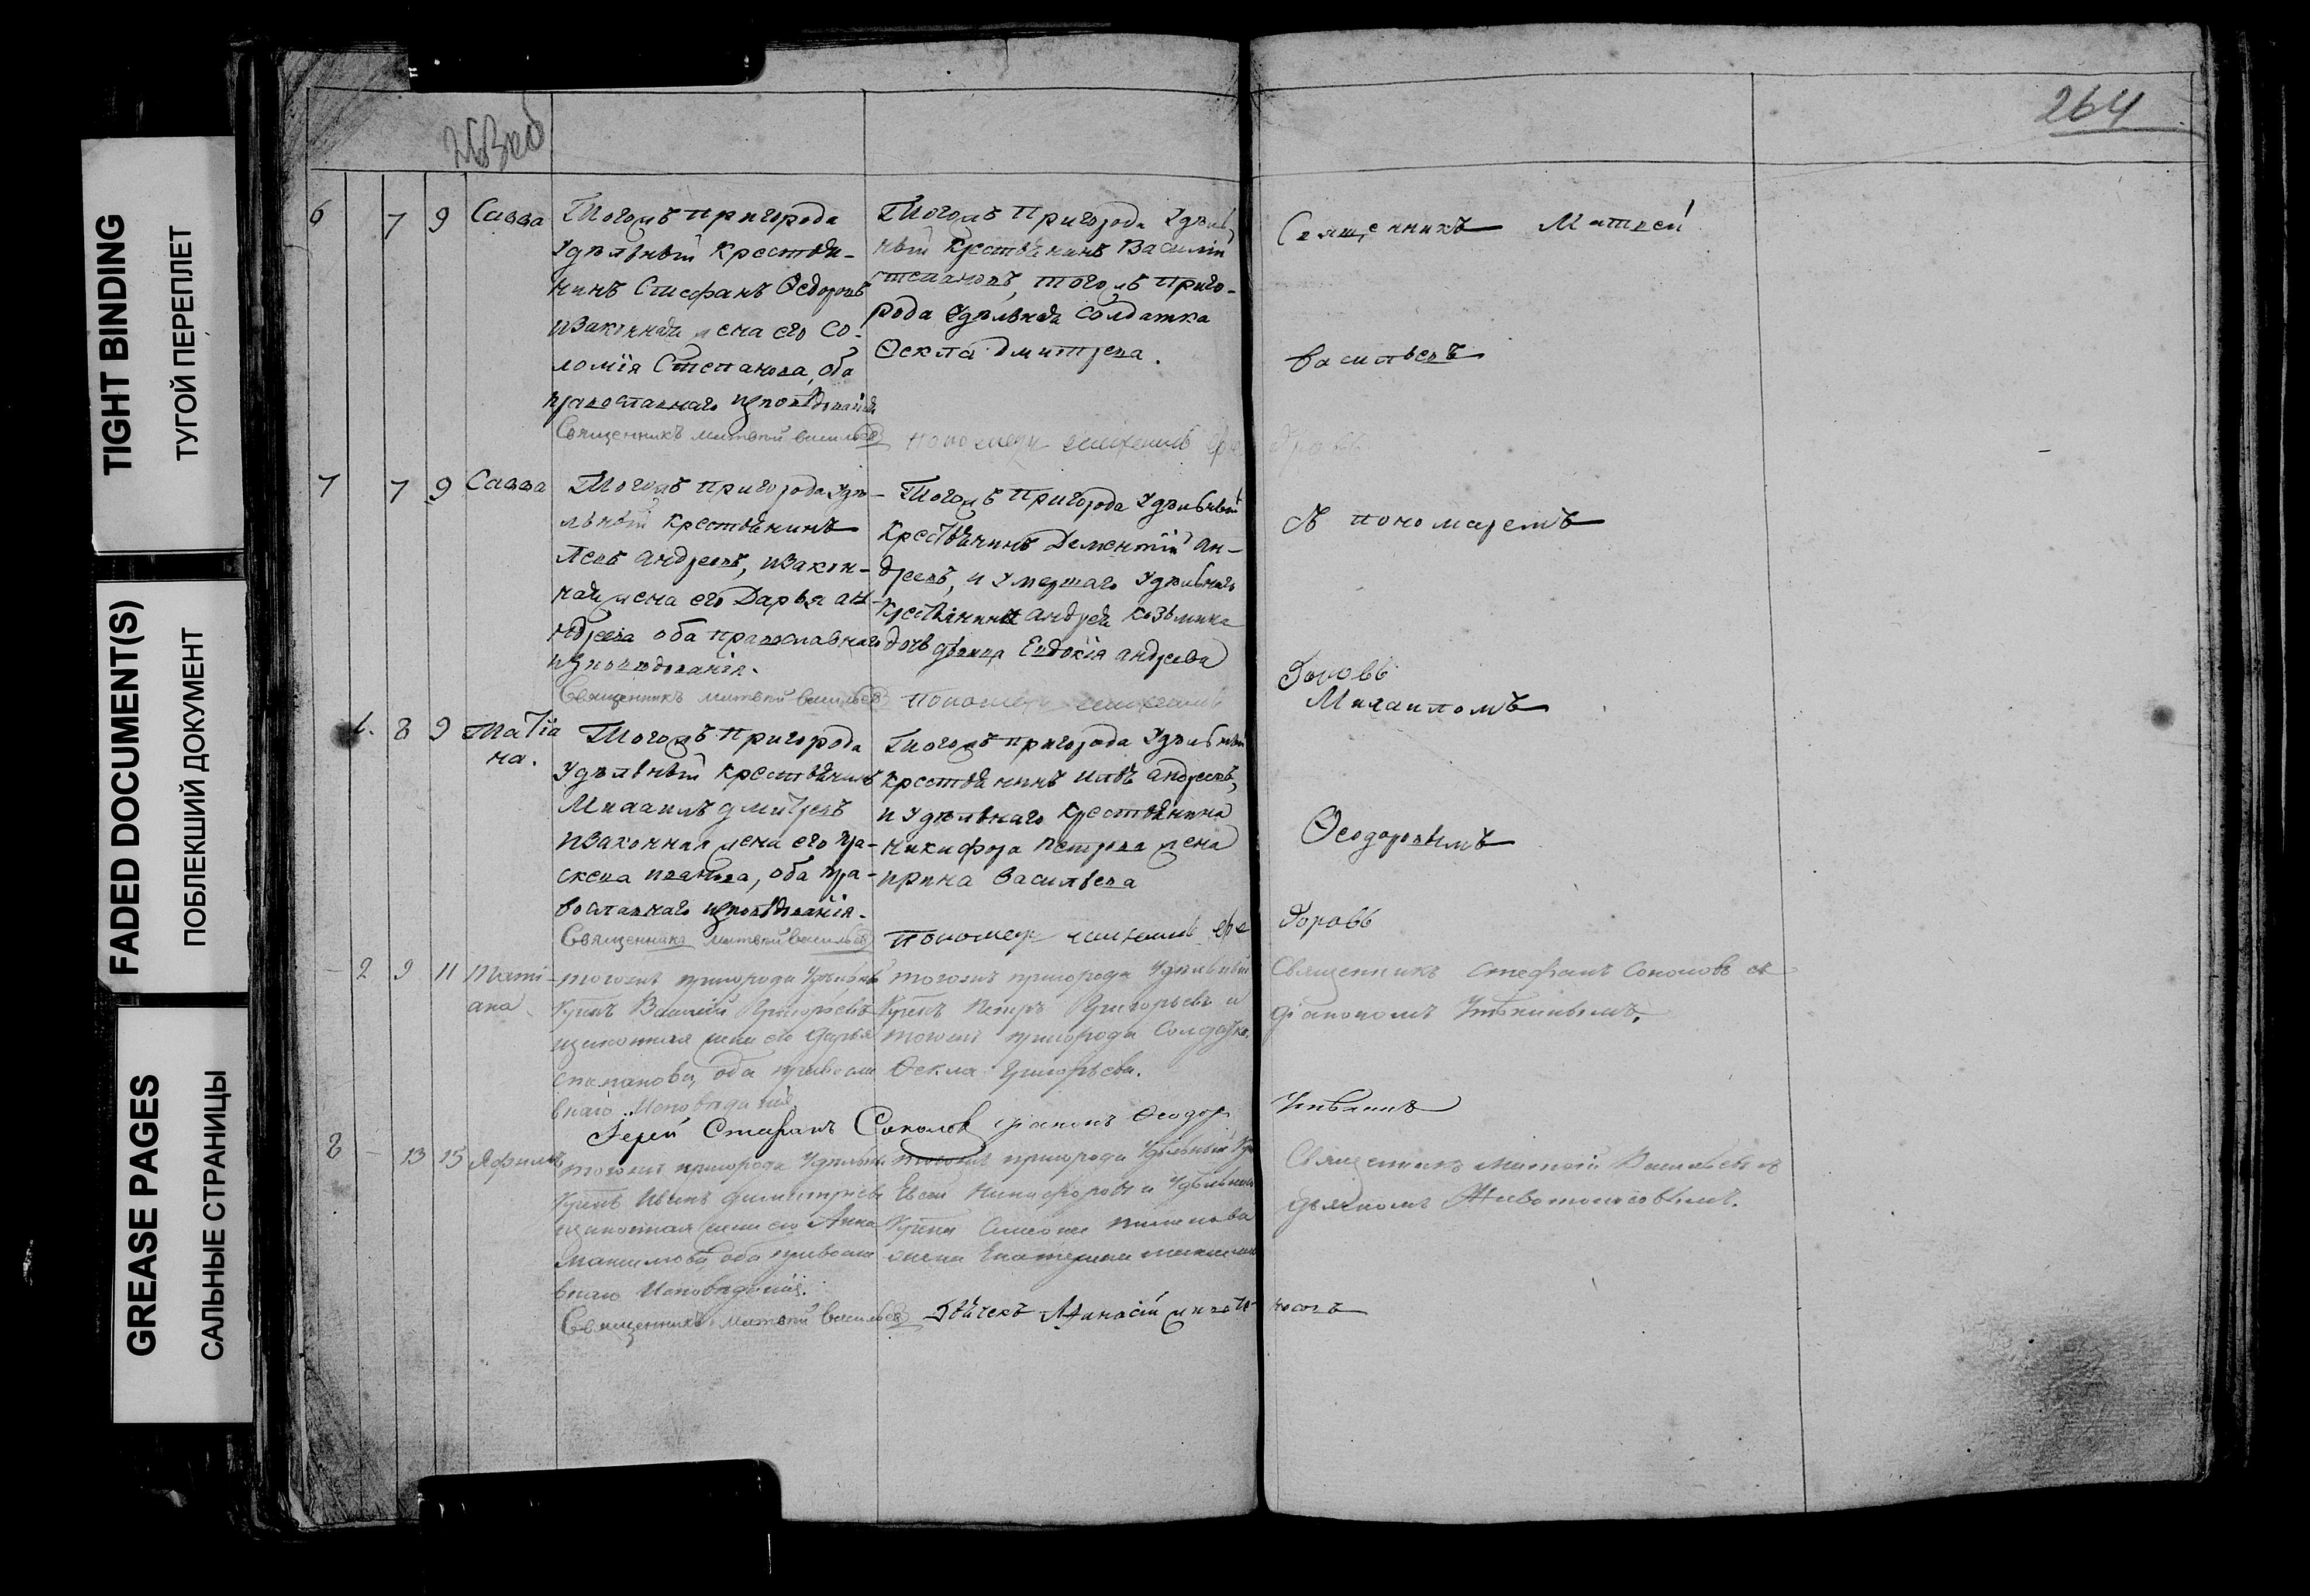 TIGHT BINDING
ТУГОЙ ПЕРЕПЛЕТ
FADED DOCUMENT(S)
ПОБЛЕКШИЙ ДОКУМЕНТ
GREASE PAGES
САЛЬНЫЕ СТРАНИЦЫ
264
6 7 9 Савва
Тогожъ пригорода
Удѣльный крестья-
нинъ Стефанъ Ѳедоровъ
изаконная жена его Со-
ломія Степанова, оба
православнаго исповѣданія
Священникъ Матвей Васильевъ
Тогожъ Пригорода Удѣль
ный крестьянинъ Василій
Степановъ, тогожъ приго-
рода Удѣльная Солдатка
Ѳекла Дмитрева.
пономарь
Священникъ Матвей
Васильевъ
7 7 9 Савва
Тогожъ пригорода Удѣ-
льный крестьянинъ
Левъ Андреевъ, изакон-
ная жена его Дарья Ан-
дреева оба православнаго
исповѣданія.
Священникъ Матвей Васильевъ
Тогожъ Пригорода Удѣльный
Крестьянинъ Дементій Ан-
дреевъ, и умершаго Удѣльнаго
крестьянина Андрея Козьмина
дочь девица Евдокія Андреева
пономарь
съ пономаремъ
1. 8 9 Татіа
на.
Тогожъ Пригорода
Удѣльный крестьянинъ
Михаилъ Дмитревъ
изаконная жена его Пра-
скева Иванова, оба пра-
вославнаго исповѣданія.
Священникъ Матвей Васильевъ
Тогожъ пригорода Удѣльный
крестьянинъ Илья Андреевъ,
и Удѣльнаго крестьянина
Никифора Петрова жена
Ирина Васильева
Пономарь
Михаиломъ
Ѳеодоровымъ
2 9 11 Тати-
ана
тогожъ пригорода Удѣльный
Крнъ Василій Григорьевъ
изаконная жена его Дарья
Степанова, оба правосла
внаго Исповѣданія
тогожъ пригорода Удѣльный
Крнъ Петръ Григорьевъ и
тогожъ пригорода Солдатка
Ѳекла Григорьева.
Священникъ Стефанъ Соколовъ съ
діакономъ
Іерей Стефанъ Соколов діаконъ Ѳеодор
8 - 13 15
тогожъ пригорода Удѣльный
Крнъ Иванъ Димитріевъ
изаконная жена его Анна
Максимова, оба правосла
внаго Исповѣданія.
Священникъ Матвей Васильевъ
тогожъ пригорода Удѣльный
Евсей Никифоровъ и Удѣльнаго
жена Екатерина
Священникъ Матвей Васильевъ съ
дьячкомъ Животоносовымъ.
Дьячекъ Афанасій Живото-
носовъ